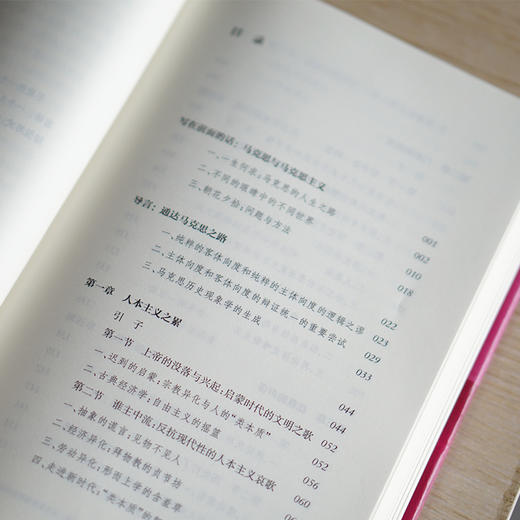 目 录
写在前面的话：马克思与马克思主义 001
一、一生何求：马克思的人生之路 002
二、不同的眼睛中的不同世界 010
三、朝花夕拾：问题与方法 018
导言：通达马克思之路 022
一、纯粹的客体向度和纯粹的主体向度的逻辑之谬 023
二、主体向度和客体向度的辩证统一的重要尝试 029
三、马克思历史现象学的生成 033
第一章 人本主义之累 044
引 子 044
第一节 上帝的没落与兴起：启蒙时代的文明之歌 052
一、迟到的启蒙：宗教异化与人的“类本质” 052
二、古典经济学：自由主义的摇篮 056
第二节 谁主中流：反抗现代性的人本主义哀歌 060
一、抽象的谎言：见物不见人 060
二、经济异化：拜物教的贞节坊
三、劳动异化：形而上学的含羞草
四、走进新时代：“类本质”的